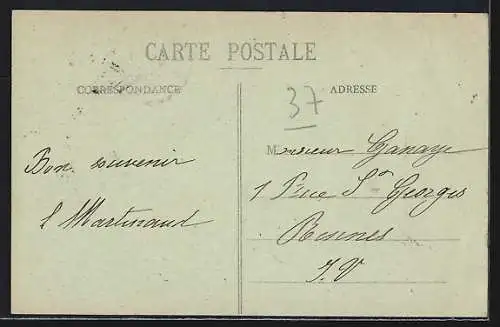 CARTE POSTALE
CORRESPONDANCE
ADRESSE
37
Bon souvenir
E Martinaud
Monsieur Ganaye
1 Rue St Georges
Rennes
I.V